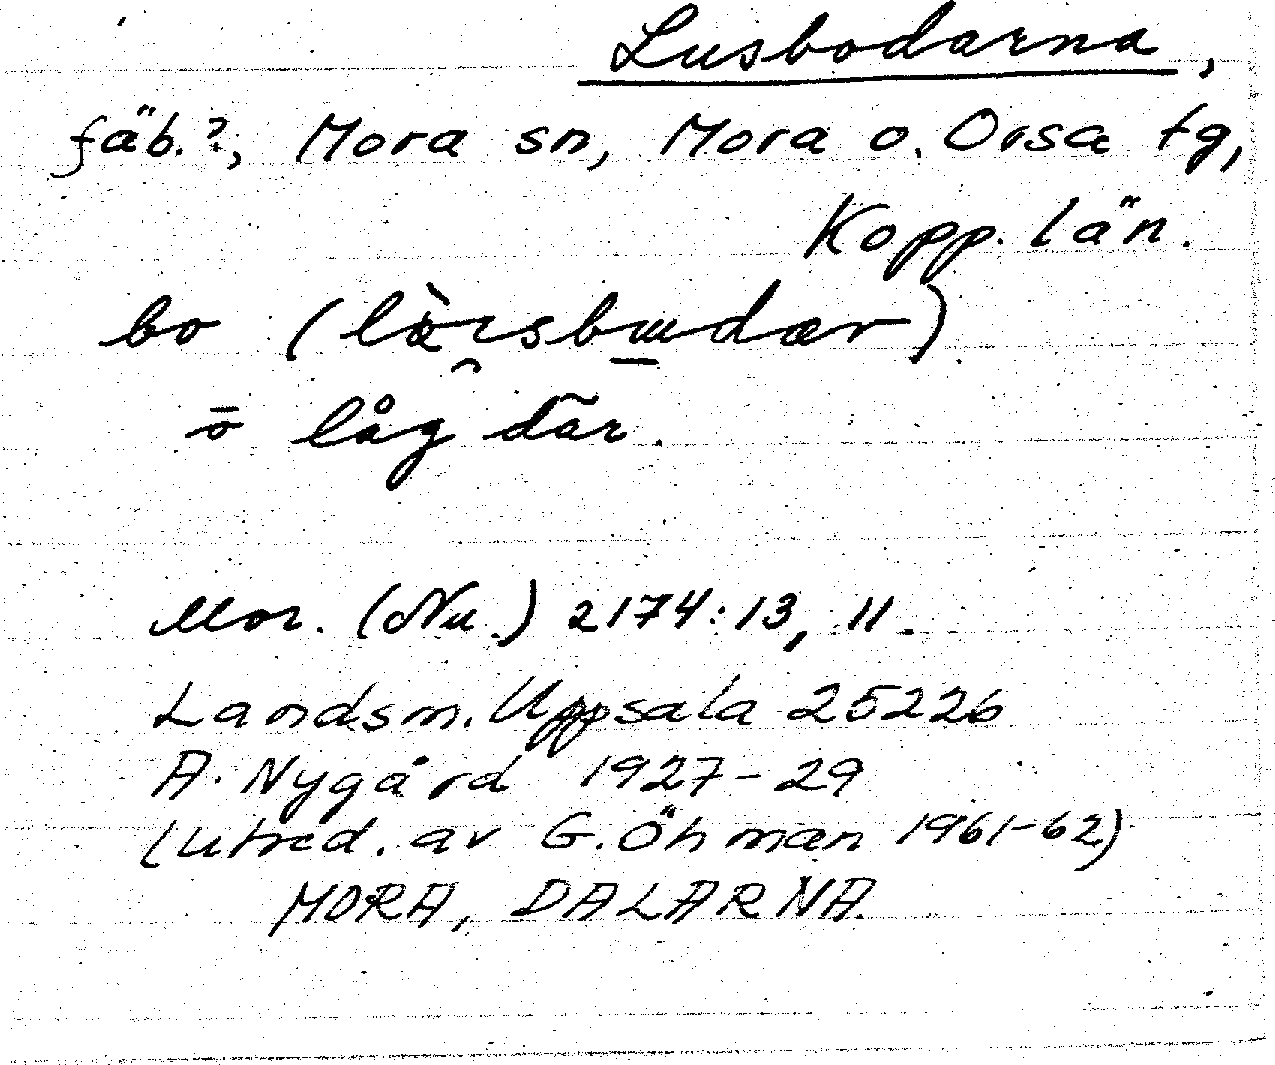 Lusbodarna,
fäb.?, Mora sn, Mora o. Orsa tg,
Kopp. län.
bo
låg där.
Mor. (Nu.) 2174:13, 11.
Landsm. Uppsala 25226
A. Nygård 1927-29
(utred. av G. Öhman 1961-62)
MORA, DALARNA.